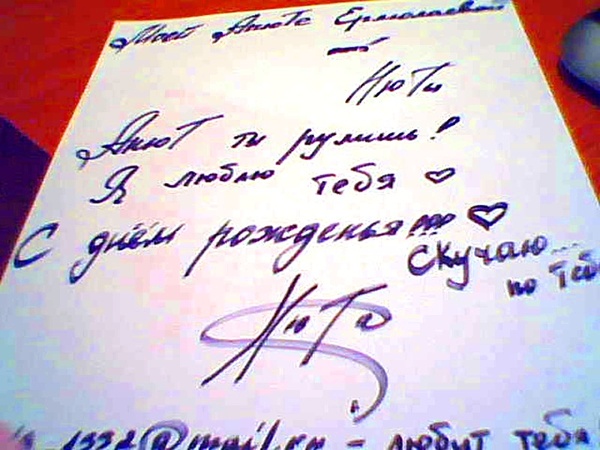 Моей Анюте Ермолаевой
от
Нюты
Анют ты рулишь!
Я люблю тебя ♡
С днём рожденья!!! ♡
Скучаю...
по тебе
Нюта
@mail.ru - любит тебя